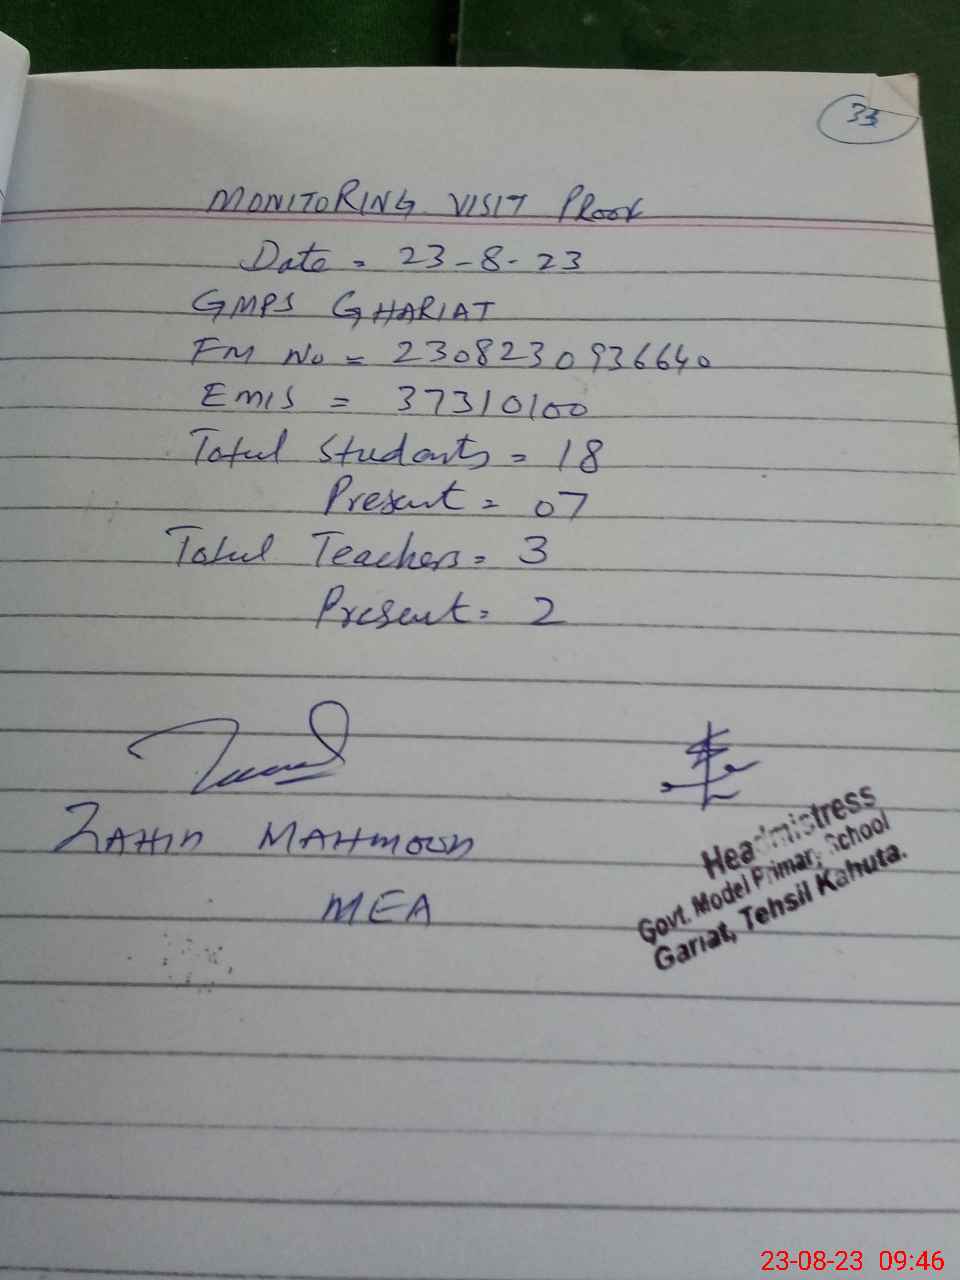 33
MONITORING VISIT PROOF
Date = 23-8-23
GMPS GHARIAT
FM No = 2308230936640
EMIS = 37310100
Total Students = 18
Present = 07
Total Teachers = 3
Present = 2
ZAHID MAHMOOD
MEA
Headmistress
Govt. Model Primary School
Gariat, Tehsil Kahuta.
23-08-23 09:46